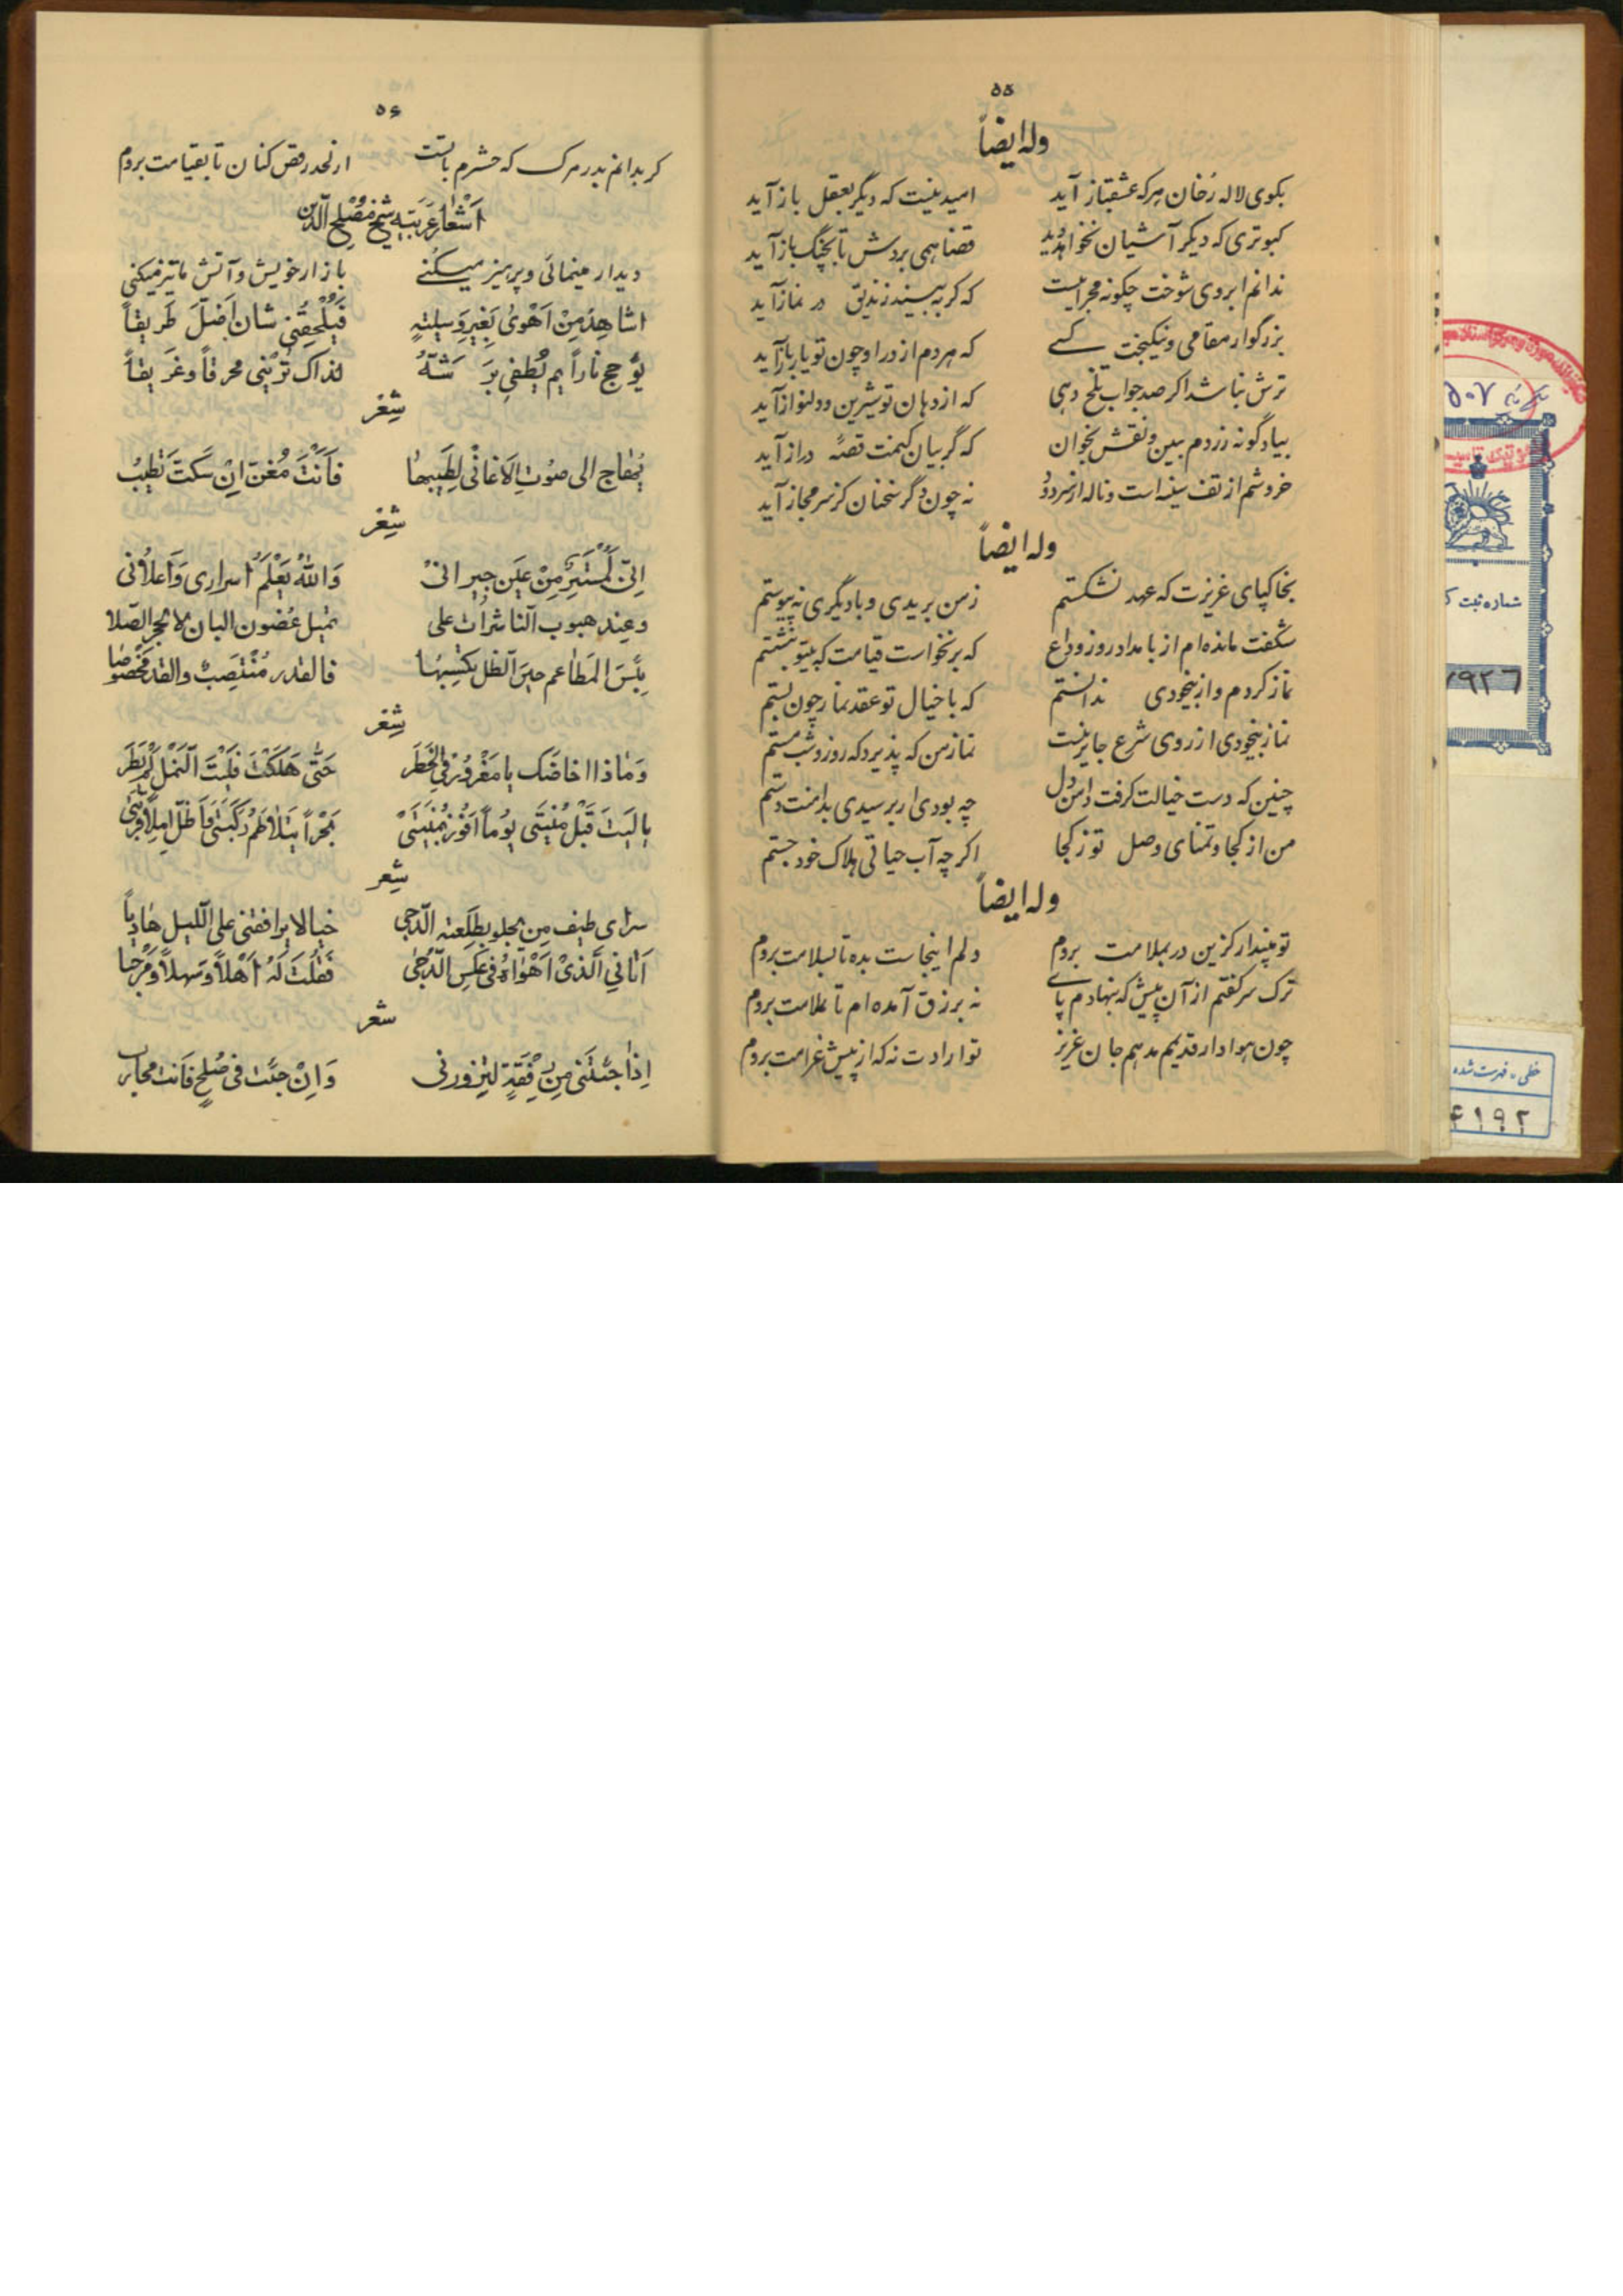 ۵۵
وله ایضاً
بکوی لاله رُخان هر که عشقباز آید امید نیست که دیگر بعقل باز آید
کبوتری که دیکر آشیان نخواهد دید قضا همی بردش تا بچنگ باز آید
ندانم ابروی شوخت چکونه محرابیست که کر به بیند زندیق در نماز آید
بزرگوار مقامی و نیکبخت کسے که هر دم از در او چون تو یار باز آید
ترش نباشد اکر صد جواب تلخ دهی که از دهان تو شیرین و دلنواز آید
بیا و گونه زردم ببین و نقش بخوان که گر بیان کنمت قصّه دراز آید
خروشم از تف سینه است و ناله از سر درد نه چون دگر سخنان کز سر مجاز آید
وله ایضاً
بخاکپای عزیزت که عهد نشکستم ز من بریدی و با دیگری نه پیوستم
شگفت مانده ام از بامداد روز وداع که برنخواست قیامت که بیتو بنشستم
نماز کردم و از بیخودی ندانستم که با خیال تو عقد نماز چون بستم
نماز بیخودی از روی شرع جایز نیست نماز من که پذیرد که روز و شب مستم
چنین که دست خیالت کرفت دامن دل چه بودی ار برسیدی بدامنت دستم
من از کجا و تمنای وصل تو ز کجا اکر چه آب حیاتی هلاک خود جستم
وله ایضاً
تو مپندار کزین در بملامت بروم دلم اینجاست بده تا بسلامت بروم
ترک سر کفتم از آن پیش که بنهادم پاے نه برزق آمده ام تا بملامت بروم
چون هوادار قدیمم بدهم جان عزیز تو ارادت نه که از پیش غرامت بروم
۵۶
کر بدانم بدر مرک که حشرم با تست از لحد رقص کنان تا بقیامت بروم
اَشْعار عَرَبیّه شیخ مُصْلِح الدّین
دیدار مینمائی و پرهیز میکنے بازار خویش و آتش ما تیز میکنی
اشاهِدُ مِنْ اَهْویٰ بِغَیْرِ وَسیلَتٍ فَیُلْحِقُنِی شان اَضَلَّ طَریقاً
یُوَجج ناراً ثم یُطفی بِرَشَّهٍ لِذاکَ تَرٰنِی محرقاً وغَریقاً
شِعْر
نُهٰاج الی صَوْتِ الاَغانی لِطیبِهٰا فَاَنْتَ مُغَنّ اِنْ سَکَتَ تَطِیبُ
شِعْر
اِنّی لَمُسْتَتِرٌ مِنْ عَیْنِ جیرانیْ وَاللّٰهُ یَعْلَمُ اسراری وَاعلاٰنی
وعِنْدَ هبوب النّاشِراتِ علی تمیل غُصُون البان لا الحجر الصّلا
بِئْسَ المَطاعم حینَ الذّل یکتسبها فالقدر مُنْتَصِبٌ والقدر مخفوضا
شِعْر
وَمٰاذا اخاضَک یا مَغْرُورُ فِی الخَطَرِ حَتّٰی هَلَکْتَ فَلَیْتَ النَّمْلَ لَمْ یَطِرِ
یا لَیْتَ قَبْلَ مُنْیَتی یوماً اَفُوزُ بِمُنْیَتیْ بَحْراً یَتَلاٰطَمُ رُکْبَتی فَاَظَلَّ اَمْلَأُ قِرْبَتی
شِعر
سرٰای طیف مِن یجلو بطلعته الدّجی خیالا یرافقنی علی اللّیل هٰادیاً
اَتانِی الَّذیْ اَهْوٰاهُ فی غَلَسِ الدُّجیٰ فَقُلْتُ لَهُ اَهْلاً وَ سَهلاً وَ مَرْحبا
شعر
اِذٰا جِئْتَنی مِن رِفْقَةٍ لِتَزورنی وَاِنْ جِئْت فی صُلْحٍ فَانت محارب
شماره ثبت ک
۷۹۲۶
خطی - فهرست شده
۴۱۹۲